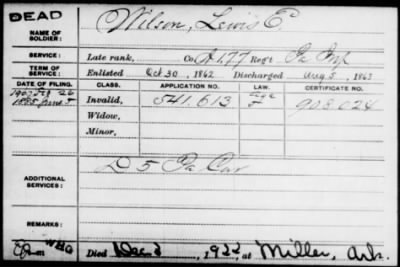 DEAD
NAME OF SOLDIER: Wilson, Lewis E.
SERVICE: Late rank, Co. H 177 Regt. Pa Inf
TERM OF SERVICE: Enlisted Oct 30, 1862 Discharged Aug 5, 1863
DATE OF FILING. CLASS. APPLICATION NO. LAW. CERTIFICATE NO.
1885 June 5 Invalid, 541.613 908.024
Widow,
Minor,
ADDITIONAL SERVICES: D 5 Pa Cav
REMARKS:
Died Dec. 1922, at Miller, Ark.